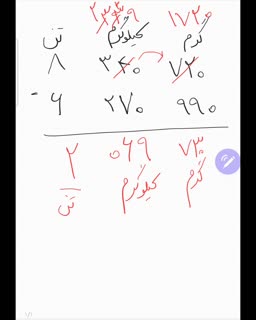 ۱۷۲۰
گرم کیلوگرم تن
۷۲۰ ۳۴۰ ۸
۹۹۰ ۲۷۰ ۶ -
۷۳۰ ۰۶۹ ۲
گرم کیلوگرم تن